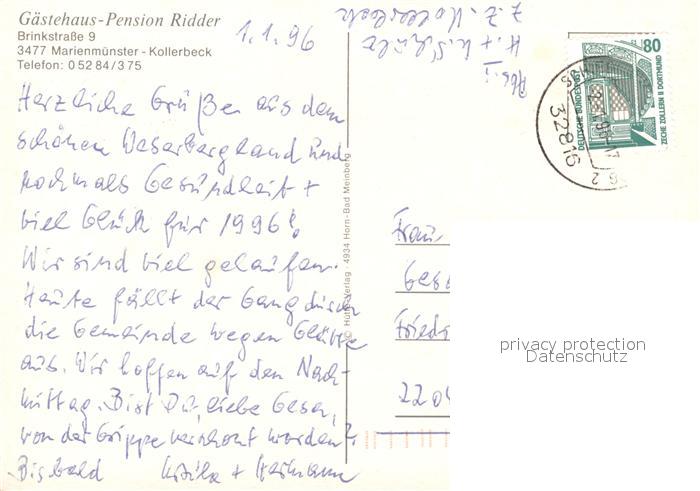 Gästehaus-Pension Ridder
Brinkstraße 9
3477 Marienmünster - Kollerbeck
Telefon: 0 52 84 / 3 75
1.1.96
Herzliche Grüße aus dem
schönen Weserbergland und
nochmals Gesundheit +
viel Glück für 1996!
Wir sind viel gelaufen.
Heute fällt der Gang durch
die Gemeinde wegen Glätte
aus. Wir hoffen auf den Nach-
mittag. Bist Du, liebe Gesa,
von der Grippe verschont worden?
Bis bald + Hermann
© Hütte-Verlag · 4934 Horn-Bad Meinberg
Abs.:
H. + U. Schulz
z. Z. Kollerbeck
80
DEUTSCHE BUNDESPOST
ZECHE ZOLLERN II DORTMUND
32816
Frau
Gesa
Friedr
2204
privacy protection
Datenschutz